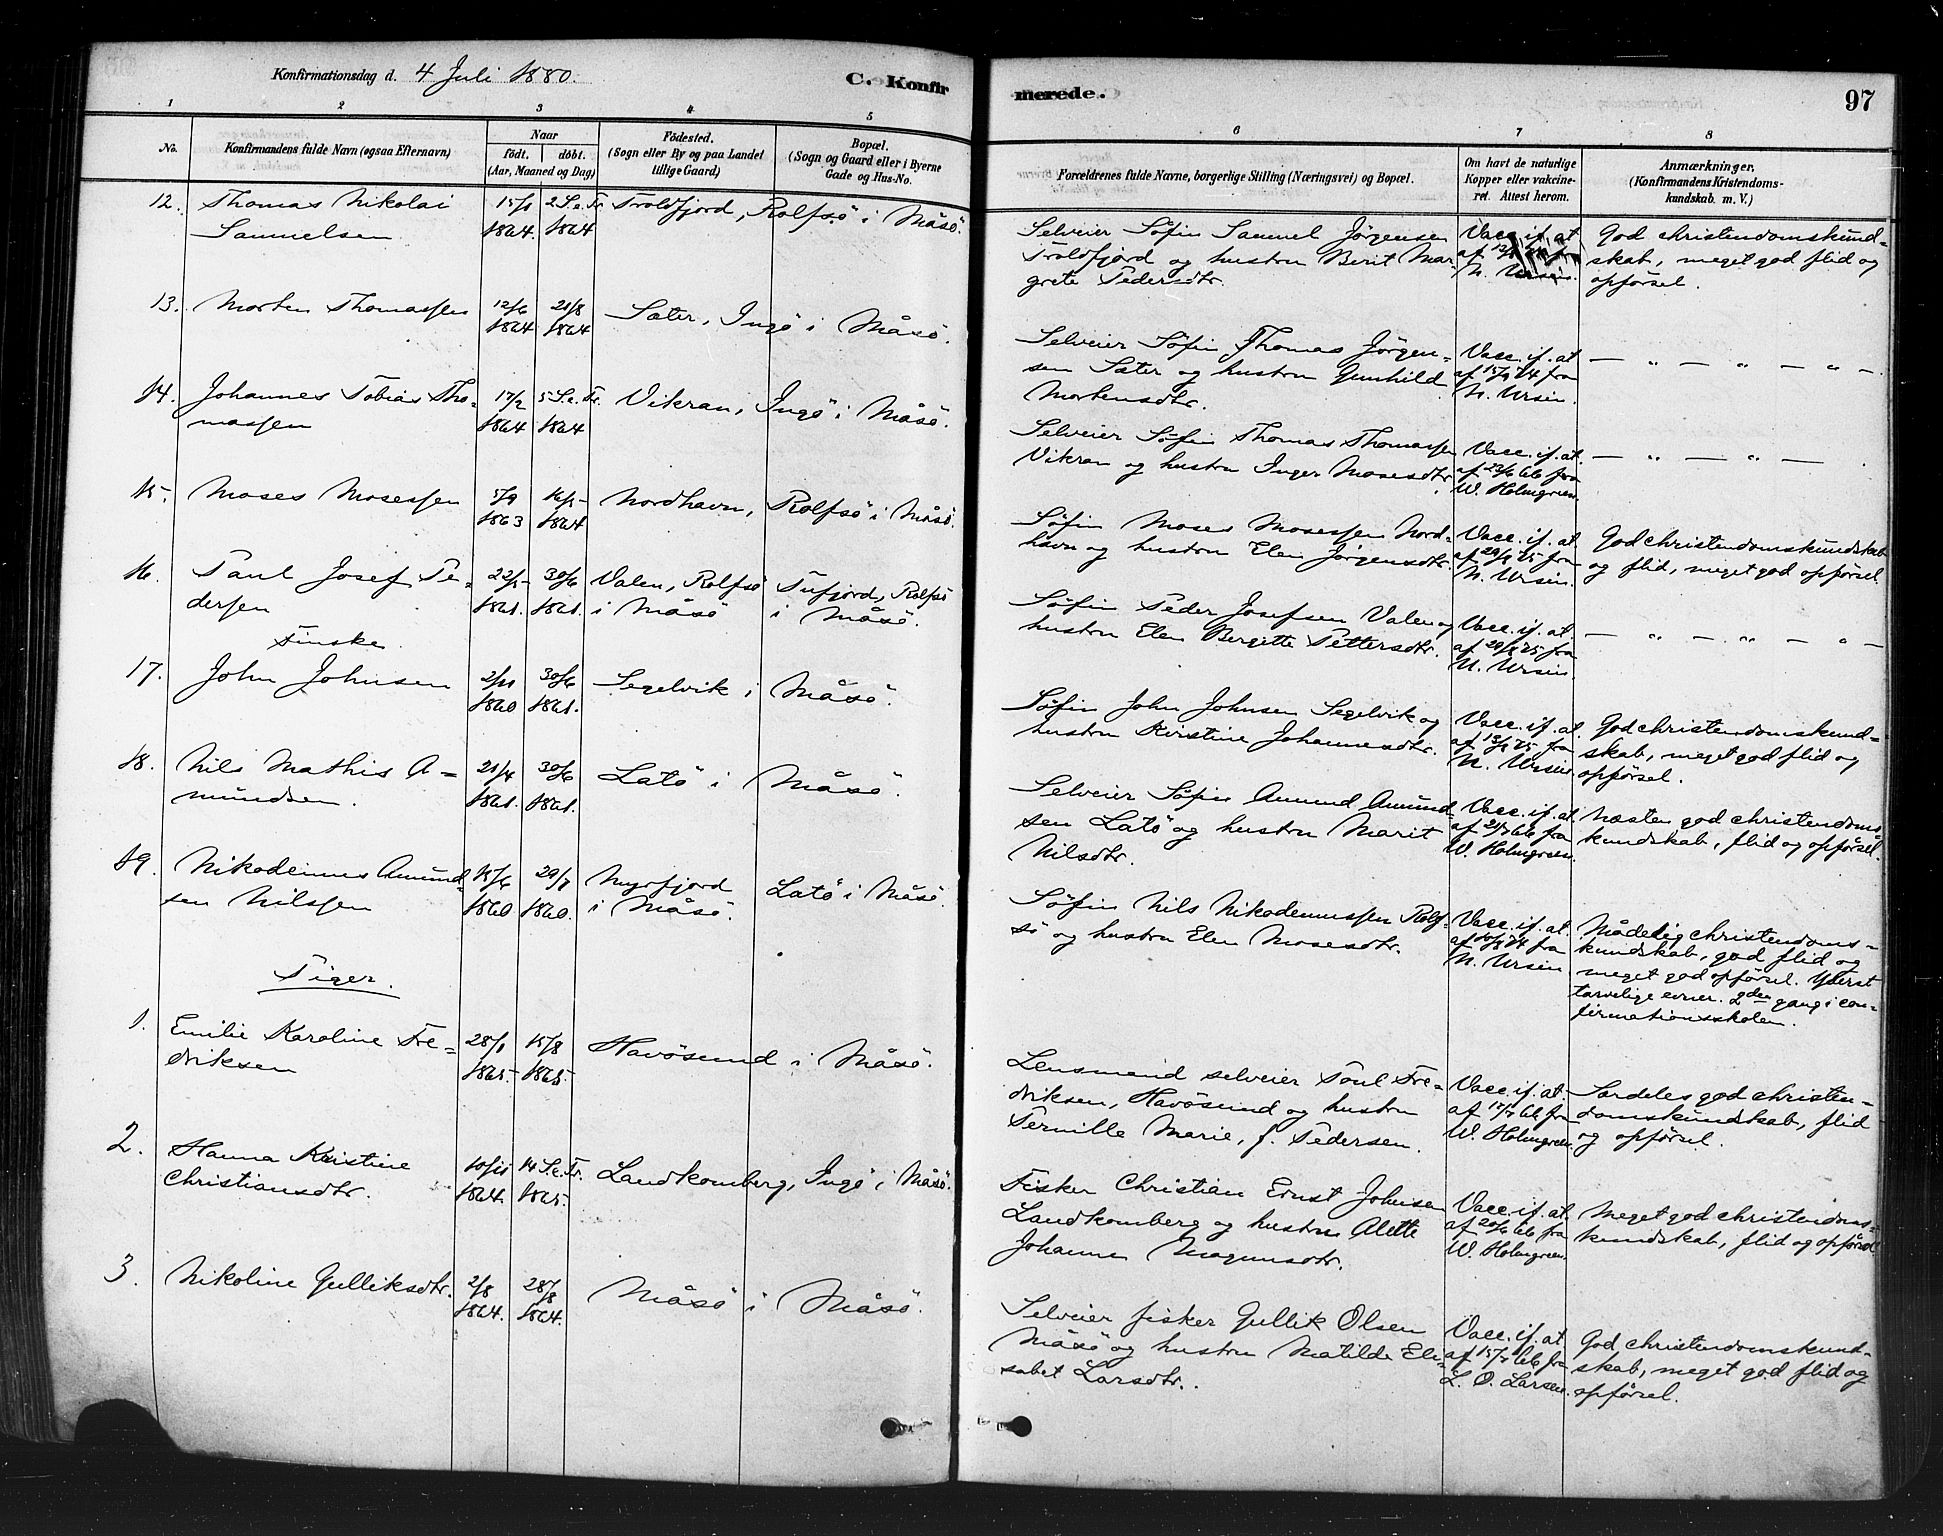 Konfirmationsdag d. 4 Juli 1880.
C. Konfirmerede.
97
1 2 3 4 5 6 7 8
No.
Konfirmandens fulde Navn (ogsaa Efternavn)
Naar
födt. döbt.
(Aar, Maaned og Dag)
Födested.
(Sogn eller By og paa Landet
tillige Gaard)
Bopæl.
(Sogn og Gaard eller i Byerne
Gade og Hus-No.
Forældrenes fulde Navne, borgerlige Stilling (Næringsvei) og Bopæl.
Om havt de naturlige
Kopper eller vakcine-
ret. Attest herom.
Anmærkninger,
(Konfirmandens Kristendoms-
kundskab m. V.)
12. Thomas Nikolai
Samuelsen
15/1 1864. 2 S. e. Tr. 1864
Troldfjord, Rolfsö i Måsö.
Selveier Söfin Samuel Jørgensen
Troldfjord og hustru Berit Mar-
grete Pedersdtr.
Vacc. if. at.
N. Ursin.
God christendomskund-
skab, meget god flid og
opförsel.
13. Morten Thomassen
12/6 1864 21/8 1864
Sæter, Ingö i Måsö.
Selveier Söfin Thomas Jörgen-
sen Sæter og hustru Gunhild
Mortensdtr.
Vacc. if. at
af 15/9 74 fra
N. Ursin.
— „ — „ — „ —.
14. Johannes Tobias Tho-
massen
17/2 1864 5 S. e. Tr. 1864
Vikran, Ingö i Måsö.
Selveier Söfin Thomas Thomassen
Vikran og hustru Inger Mosesdtr.
Vacc. if. at.
af 23/6 66 fra
W. Holmgreen.
— „ — „ — .
15. Moses Mosessen
5/9 1863 16/5 1864
Nordhavn, Rolfsö i Måsö.
Söfin Moses Mosessen Nord-
havn og hustru Elen Jørgensdtr.
Vacc. if. at.
af 29/8 75 fra
N. Ursin.
God christendomskundskab
og flid, meget god opförsel.
16. Paul Josef Pe-
dersen
22/5 1861. 30/6 1861.
Valen, Rolfsö
i Måsö
Tufjord, Rolfsö
i Måsö.
Söfin Peder Josefsen Valen og
hustru Elen Bergitte Pettersdtr.
Vacc. if. at.
af 29/8 75 fra
N. Ursin.
— „ — „ — „ —
Finske.
17. John Johnsen
2/11 1860 30/6 1861.
Segelvik i Måsö.
Söfin John Johnsen Segelvik og
hustru Kirstine Johannesdtr.
Vacc. if. at
af 13/8 75 fra
N. Ursin.
God christendomskund-
skab, meget god flid og
opförsel.
18. Nils Mathis A-
mundsen.
21/4 1861. 30/6 1861.
Latö i Måsö.
Selveier Söfin Amund Amund-
sen Latö og hustru Marit
Nilsdtr.
Vacc. if. at
af 21/7 66 fra
W. Holmgreen.
Næsten god christendoms-
kundskab, flid og opförsel.
19. Nikodemus Amund-
sen Nilssen
15/6 1860 29/7 1860.
Myrfjord
i Måsö.
Latö i Måsö.
Söfin Nils Nikodemussen Rolf-
sö og hustru Elen Mosesdtr.
Vacc. if. at.
af 30/8 74 fra
N. Ursin
Mådelig christendoms-
kundskab, god flid og
meget god opförsel. Yderst
tarvelige evner. 2den gang i con-
firmationsskolen.
Piger.
1. Emilie Karoline Fre-
driksen
28/1 1865. 15/8 1865.
Havösund i Måsö.
Lensmand selveier Poul Fre-
driksen, Havösund og hustru
Pernille Marie, f. Pedersen.
Vacc. if. at.
af 17/7 66 fra
W. Holmgreen.
Særdeles god christen-
domskundskab, flid
og opförsel.
2. Hanna Kristine
Christiansdtr.
10/11 1864. 14 S. e. Tr. 1865.
Landkomberg, Ingö i Måsö.
Fisker Christian Ernst Johnsen
Landkomberg og hustru Alette
Johanne Magnusdtr.
Vacc. if. at.
af 20/6 66 fra
W. Holmgreen.
Meget god christendoms-
kundskab, flid og opförsel
3. Nikoline Gulliksdtr.
2/8 1864. 28/8 1864.
Måsö i Måsö.
Selveier fisker Gullik Olsen
Måsö og hustru Matilde Eli-
sabet Larsdtr.
Vacc. if. at
af 15/7 66 fra
L. O. Larsen.
God christendomskund-
skab, meget god flid og
opförsel.